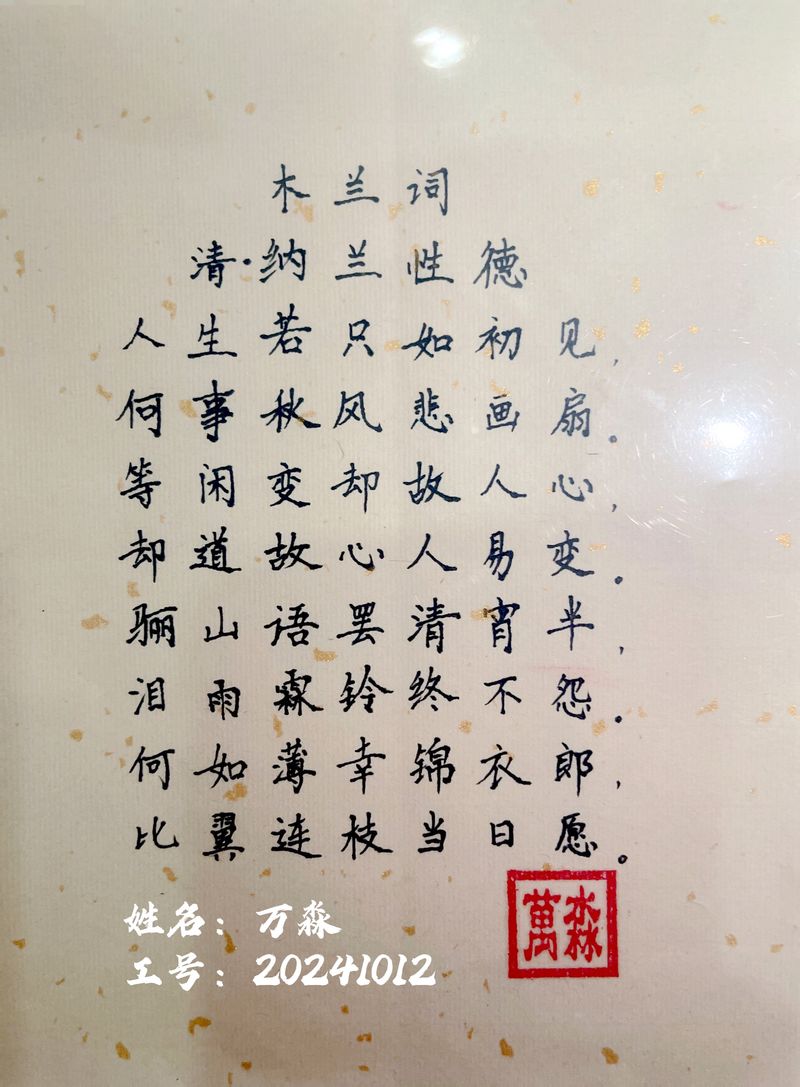 木兰词
清·纳兰性德
人生若只如初见，
何事秋风悲画扇。
等闲变却故人心，
却道故心人易变。
骊山语罢清宵半，
泪雨霖铃终不怨。
何如薄幸锦衣郎，
比翼连枝当日愿。
萬淼
姓名：万淼
工号：20241012